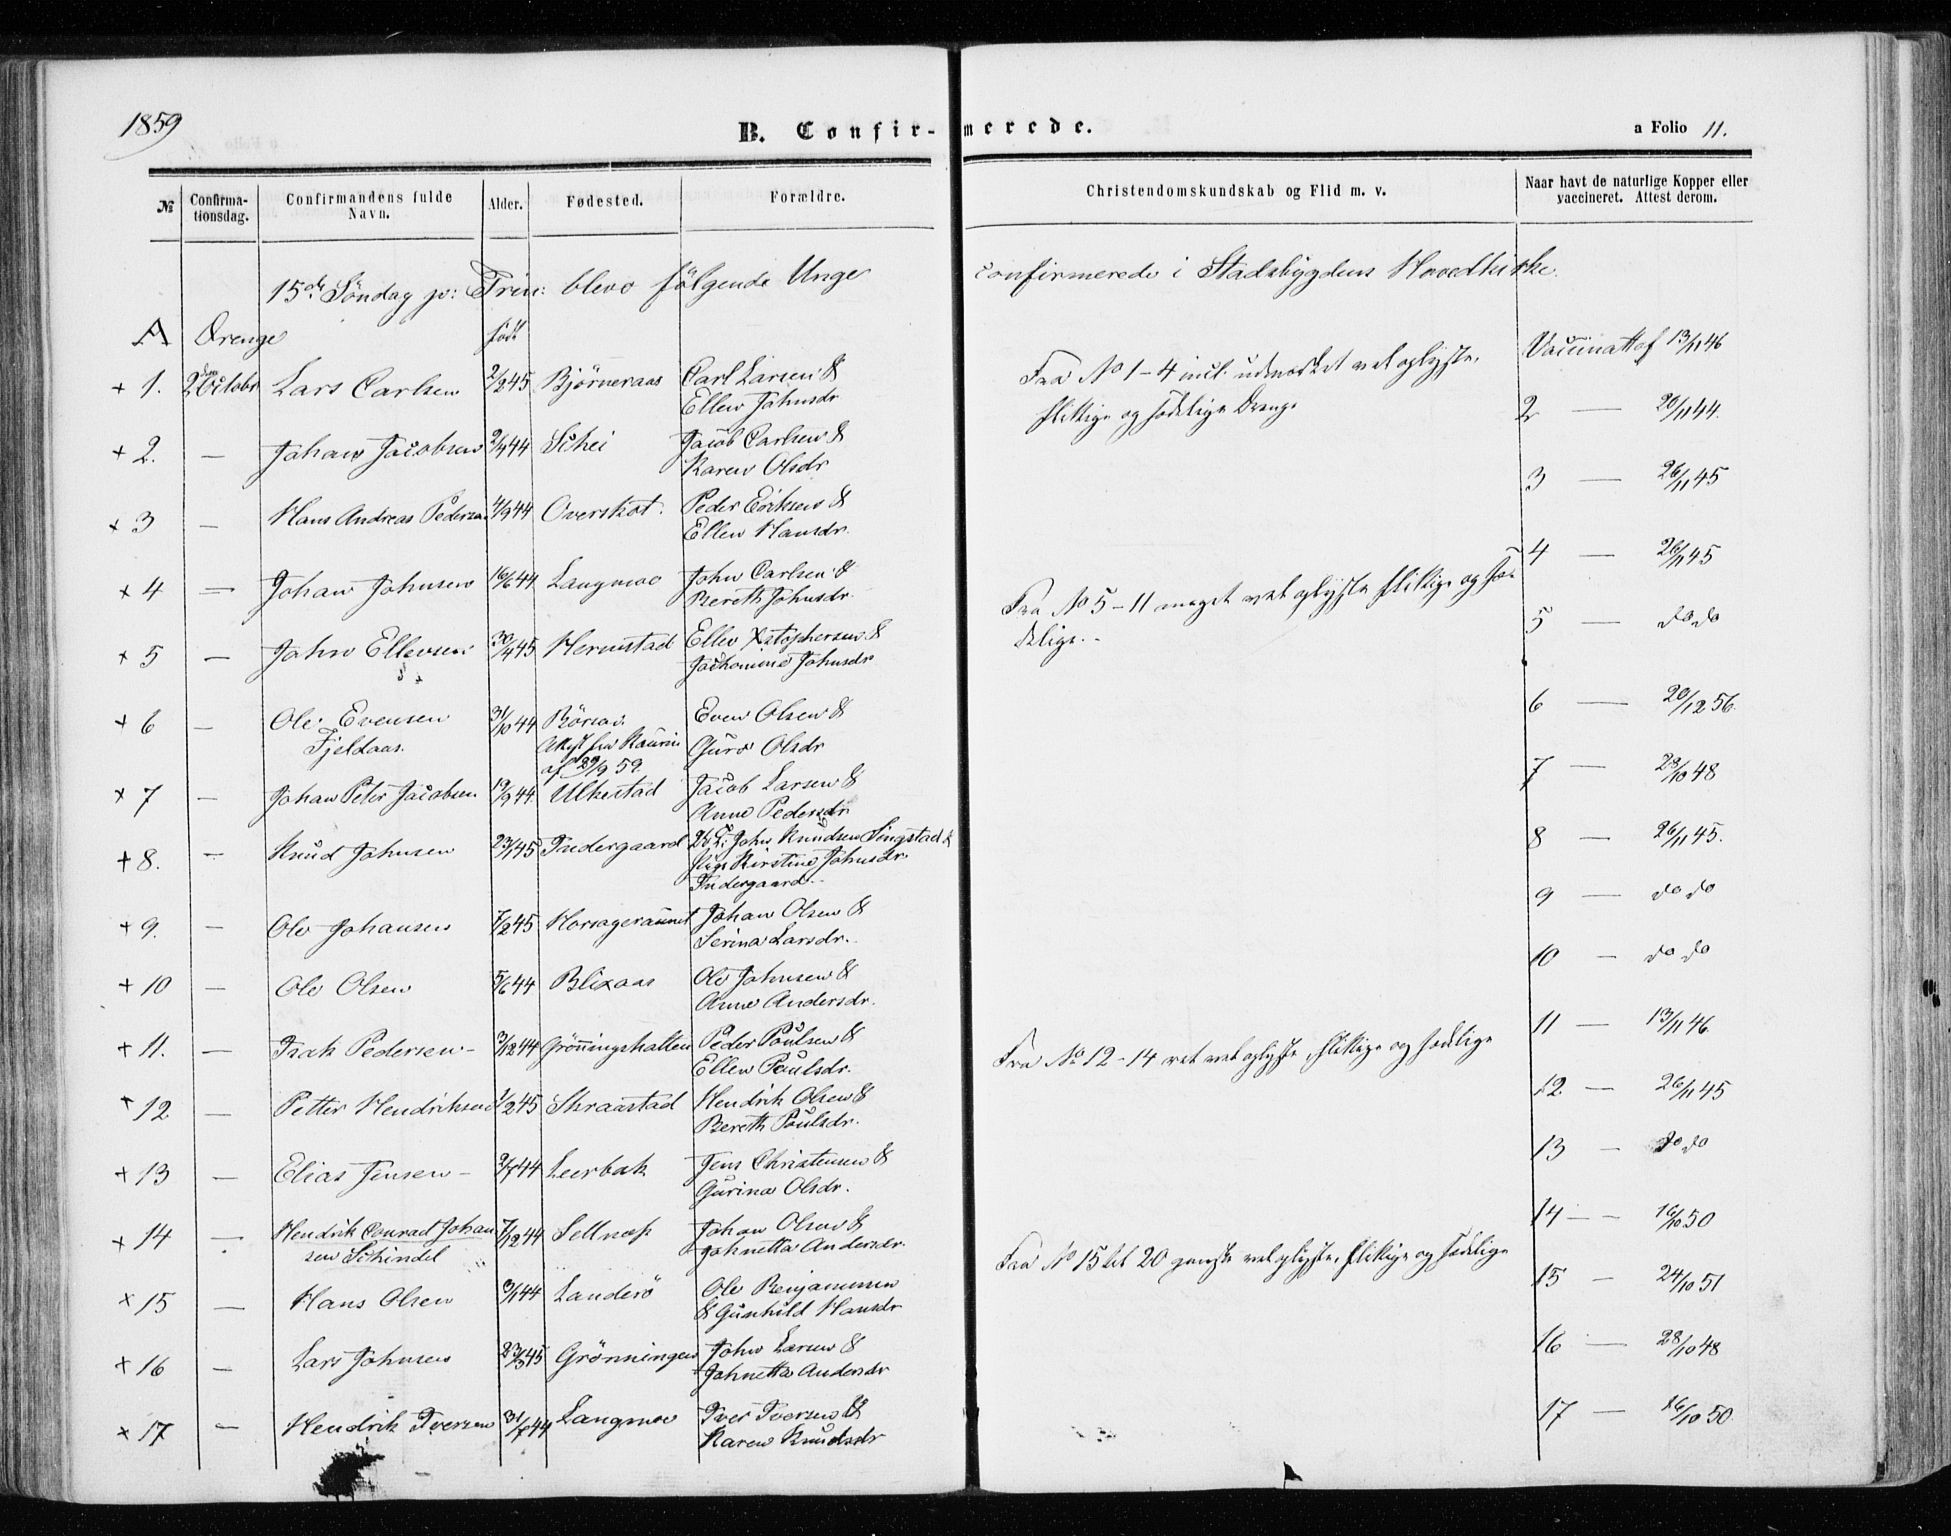 1859
B. Confir- merede.
a Folio 11.
№ Confirma-tionsdag. Confirmandens fulde Navn. Alder. Fødested. Forældre. Christendomskundskab og Flid m. v. Naar havt de naturlige Kopper eller vaccineret. Attest derom.
15de Søndag p: Trin: bleve følgende Unge confirmerede i Stadsbygdens Hovedkirke.
A Drenge født
+ 1. 2den Octobr Lars Carlsen 2/2 45 Bjørneraas Carl Larsen &
Ellen Johnsdr
Fra No 1-4 incl. udmærket vel oplyste,
flittige og sædelige Drenge
Vaccinatt af 13/11 46
+ 2. — Johan Jacobsen 44 Schei Jacob Carlsen &
Karen Olsdr
2 — 20/11 44.
+ 3 — Hans Andreas Pedersen 4/9 44 Overskot. Peder Eriksen &
Ellen Hansdr.
3 — 26/11 45
+ 4 — Johan Johnsen 16/6 44 Langmoe John Carlsen &
Bereth Johnsdr.
4 — 26/11 45
Fra No 5-11 meget vel oplyste flittige og sæ-
delige.
+ 5 — John Ellevsen 30/4 45 Hermstad Ellev Xstophersen &
Johnsdr
5 — do do
+ 6 — Ole Evensen
Fjeldaas.
31/10 44 Børsen
af 29/9 59.
Even Olsen &
Guro Olsdr
6 — 20/12 56.
+ 7 — Johan Peter Jacobsen 19/9 44. Ulkestad Jacob Larsen &
Anne Pedersdr
7 — 23/10 48
+ 8. — Knud Johnsen 23/1 45 Indergaard John Knudsen Singstad &
Pige Kirstine Johnsdr.
Indergaard.
8 — 26/11 45.
+ 9. — Ole Johansen 7/2 45 Horsageraunet Johan Olsen &
Serina Larsdr.
9 — do do
+ 10 — Ole Olsen 5/6 44 Blixaas Ole Johnsen &
Anne Andersdr.
10 — do do
+ 11. — Isak Pedersen 3/12 44 Grönningshalten Peder Paulsen &
Ellen Paulsdr.
11 — 13/11 46.
Fra No 12-14 ret vel oplyste, flittige og sædelige
+ 12 — Petter Hendriksen 1/2 45 Skraastad Hendrik Olsen &
Bereth Paulsdr.
12 — 26/11 45
+ 13 — Elias Jensen 44 Leerbak Jens Christensen &
Gurina Olsdr.
13 — do do
+ 14 — Hendrik Conrad Johan
sen Schindel
7/12 44 Sellnæs Johan Olsen &
Johnetta Andersdr.
14 — 16/10 50
Fra No 15 til 20 ganske vel oplyste, flittige og sædelige
+ 15 — Hans Olsen 3/1 44 Landerö Ole Benjaminsen
& Gunhild Hansdr
15 — 24/10 51
+ 16 — Lars Johnsen 23/3 45 Grönningen John Larsen &
Johnetta Andersdr
16 — 28/10 48
+ 17 — Hendrik Iversen 44 Langmoe Iver Iversen &
Karen Knudsdr
17 — 16/10 50.